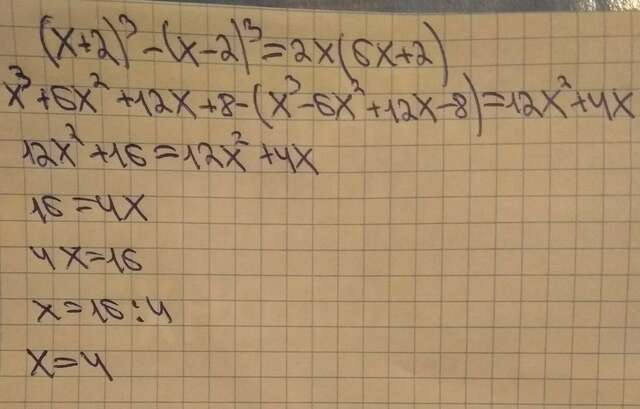 (x+2)³-(x-2)³=2x(6x+2)
x³+6x²+12x+8-(x³-6x²+12x-8)=12x²+4x
12x²+16=12x²+4x
16=4x
4x=16
x=16:4
x=4